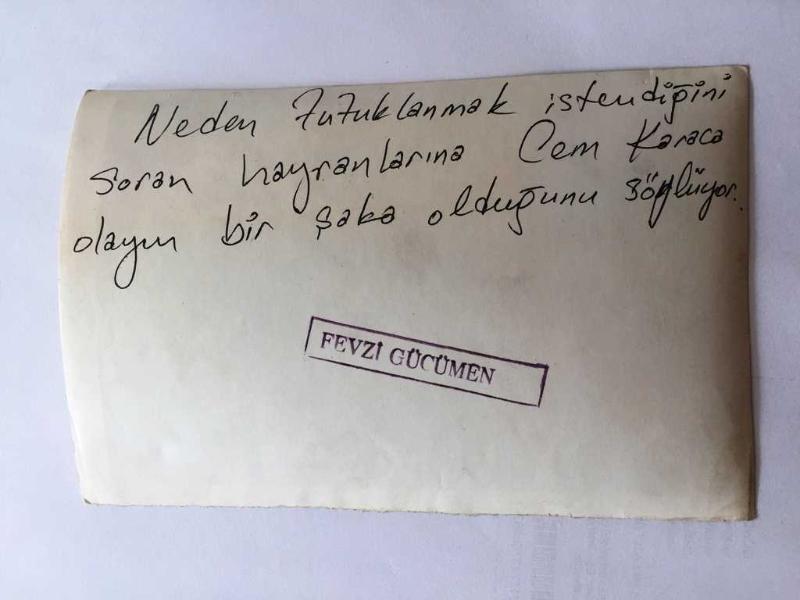 Neden tutuklanmak istendiğini
soran hayranlarına Cem Karaca
olayın bir şaka olduğunu söylüyor.
FEVZİ GÜCÜMEN